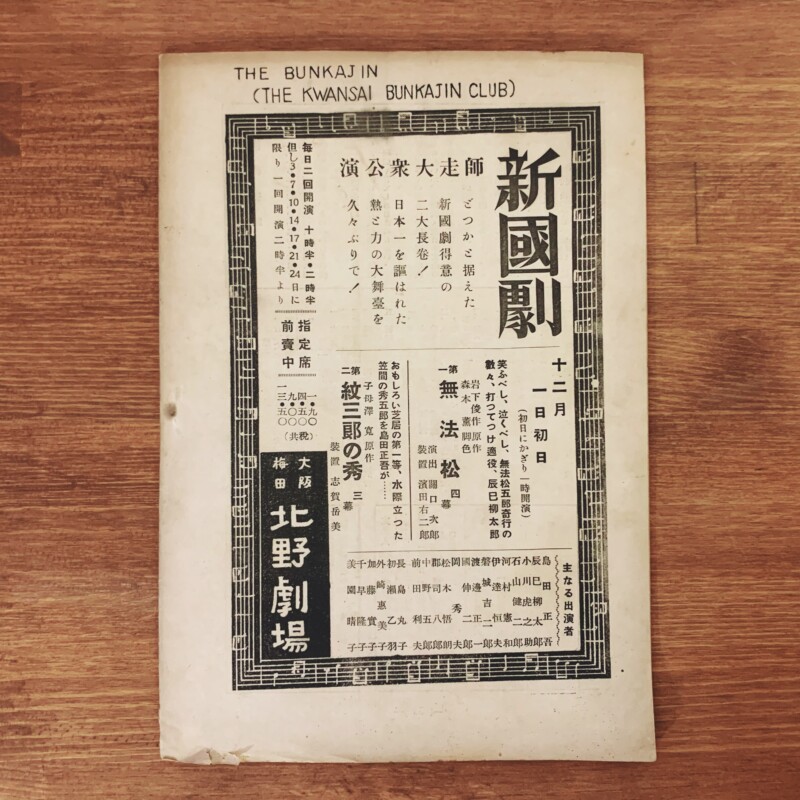 THE BUNKAJIN
(THE KWANSAI BUNKAJIN CLUB)
新國劇
師走大衆公演
どつかと据えた
新國劇得意の
二大長卷!
日本一を謳はれた
熱と力の大舞臺を
久々ぶりで!
毎日二回開演 十時半・二時半
但し3・7・10・14・17・21・24日に
限り一回開演二時半より
指定席
前賣中
一九〇
四・五〇
九・五〇
一三・〇〇
(共税)
大阪
梅田
北野劇場
十二月
一日初日
(初日にかぎり一時開演)
笑ふべし、泣くべし、無法松五郎奇行の
數々、打つてつけ適役、辰巳柳太郎
岩下俊作原作
森本薫脚色
第一 無法松 四幕
演出 關口次郎
装置 濱田右二郎
おもしろい芝居の第一等、水際立つた
笠間の秀五郎を島田正吾が……
子母澤寛原作
第二 紋三郎の秀 三幕
装置 志賀岳美
主なる出演者
島田正吾
辰巳柳太郎
小川虎之助
石山健二郎
河村憲和
伊達恒夫
磐城吉二郎
渡邊正一
國仲二郎
岡秀夫
松木悟朗
郡司八郎
中野五郎
前田利夫
長島丸子
初瀬乙羽
外崎惠美子
加藤實子
千早隆子
美園晴子